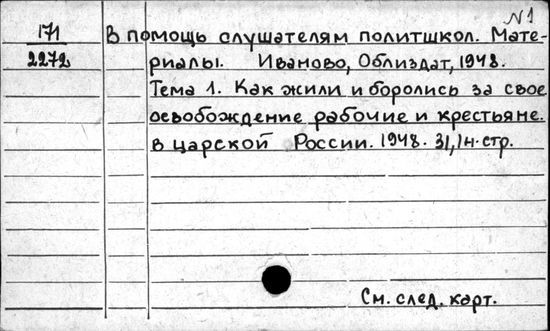 N1
171 В помощь слушателям политшкол. Мате-
2272 риалы. Иваново, Облиздат, 1948.
Тема 1. Как жили и боролись за свое
освобождение рабочие и крестьяне.
в царской России. 1948. 31,1н.стр.
См. след. карт.